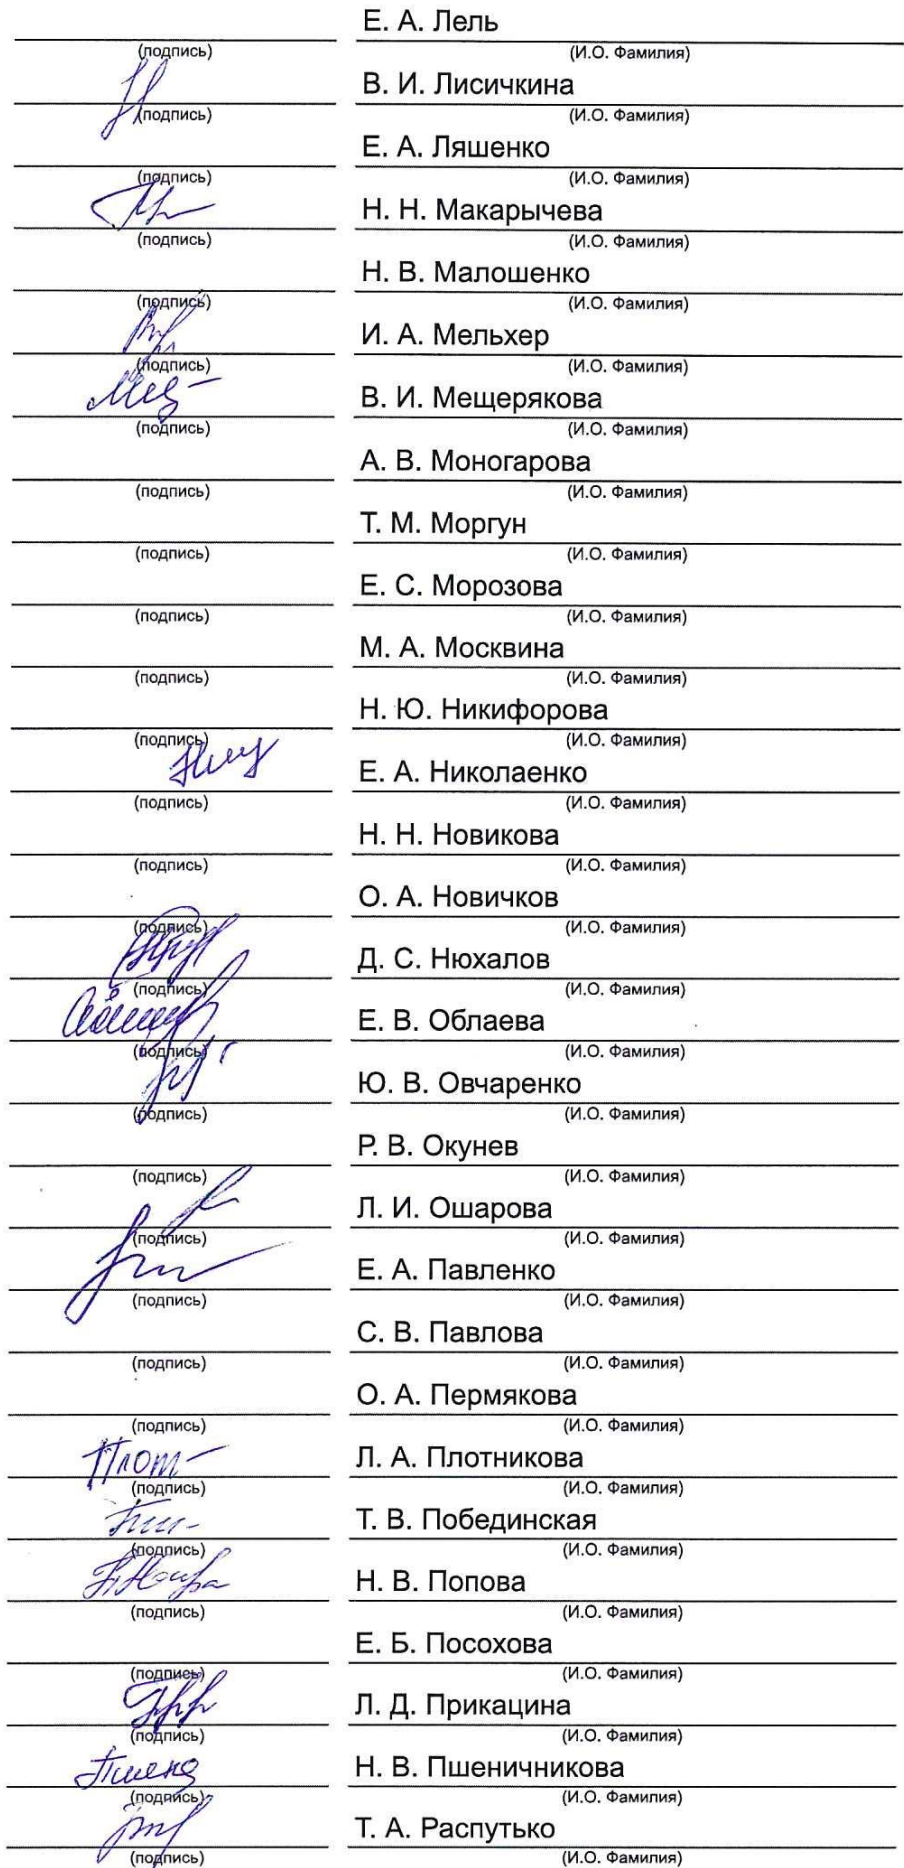 Е. А. Лель
(подпись) (И.О. Фамилия)
В. И. Лисичкина
(подпись) (И.О. Фамилия)
Е. А. Ляшенко
(подпись) (И.О. Фамилия)
Н. Н. Макарычева
(подпись) (И.О. Фамилия)
Н. В. Малошенко
(подпись) (И.О. Фамилия)
И. А. Мельхер
(подпись) (И.О. Фамилия)
В. И. Мещерякова
(подпись) (И.О. Фамилия)
А. В. Моногарова
(подпись) (И.О. Фамилия)
Т. М. Моргун
(подпись) (И.О. Фамилия)
Е. С. Морозова
(подпись) (И.О. Фамилия)
М. А. Москвина
(подпись) (И.О. Фамилия)
Н. Ю. Никифорова
(подпись) (И.О. Фамилия)
Е. А. Николаенко
(подпись) (И.О. Фамилия)
Н. Н. Новикова
(подпись) (И.О. Фамилия)
О. А. Новичков
(подпись) (И.О. Фамилия)
Д. С. Нюхалов
(подпись) (И.О. Фамилия)
Е. В. Облаева
(подпись) (И.О. Фамилия)
Ю. В. Овчаренко
(подпись) (И.О. Фамилия)
Р. В. Окунев
(подпись) (И.О. Фамилия)
Л. И. Ошарова
(подпись) (И.О. Фамилия)
Е. А. Павленко
(подпись) (И.О. Фамилия)
С. В. Павлова
(подпись) (И.О. Фамилия)
О. А. Пермякова
(подпись) (И.О. Фамилия)
Плот Л. А. Плотникова
(подпись) (И.О. Фамилия)
Т. В. Побединская
(подпись) (И.О. Фамилия)
Н. В. Попова
(подпись) (И.О. Фамилия)
Е. Б. Посохова
(подпись) (И.О. Фамилия)
Л. Д. Прикацина
(подпись) (И.О. Фамилия)
Н. В. Пшеничникова
(подпись) (И.О. Фамилия)
Т. А. Распутько
(подпись) (И.О. Фамилия)